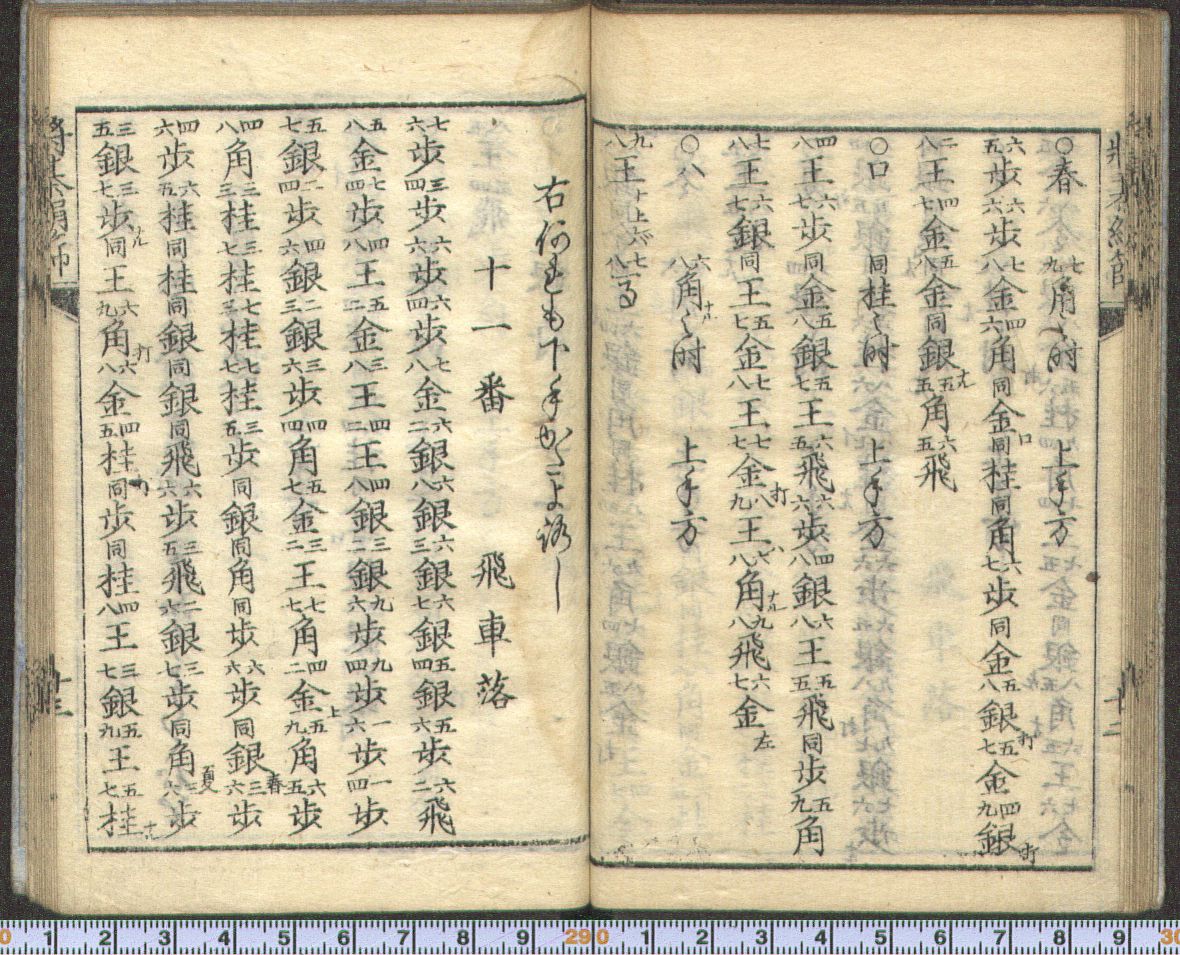 ○春 七九角ノ時 上手方
六五歩六六歩七八金四六角同金口同桂同角六七歩同金五八銀打五七金四九銀打
二八王四七金五八金同銀ナル五五角六五飛
○口 同桂ノ時 上手方
四八王六七歩同金五八銀五七王六五飛六六歩四八銀六八王五五飛同歩五九角
七八王六七銀同王五七金七八王七七金打八九王ハ六八角ナル九八飛六七金左
○ハ 六八角ナルノ時 上手方
九八王
十二
右何れも下手かたよろし
十一番 飛車落
七六歩三四歩六六歩六四歩七八金六二銀六八銀六三銀六七銀五四銀五六歩六二飛
五八金七四歩四八王五二金三八王四二王四八銀三二銀九六歩九四歩一六歩一四歩
五七銀二四歩四六銀二三銀三六歩四四角五七金三二王七七角四二金上五九角六五歩
四八角三三桂三七桂七三桂七七桂三五歩同銀同角同歩六六歩同銀春三六歩
四六歩六五桂同桂同銀同銀同飛六六歩三五飛二六銀三七歩同角夏三六歩
三五銀三七歩ナル同王六九角打六八金四五桂打同歩同桂四八王三七銀五九王五七桂ナル
将棊絹篩
十三